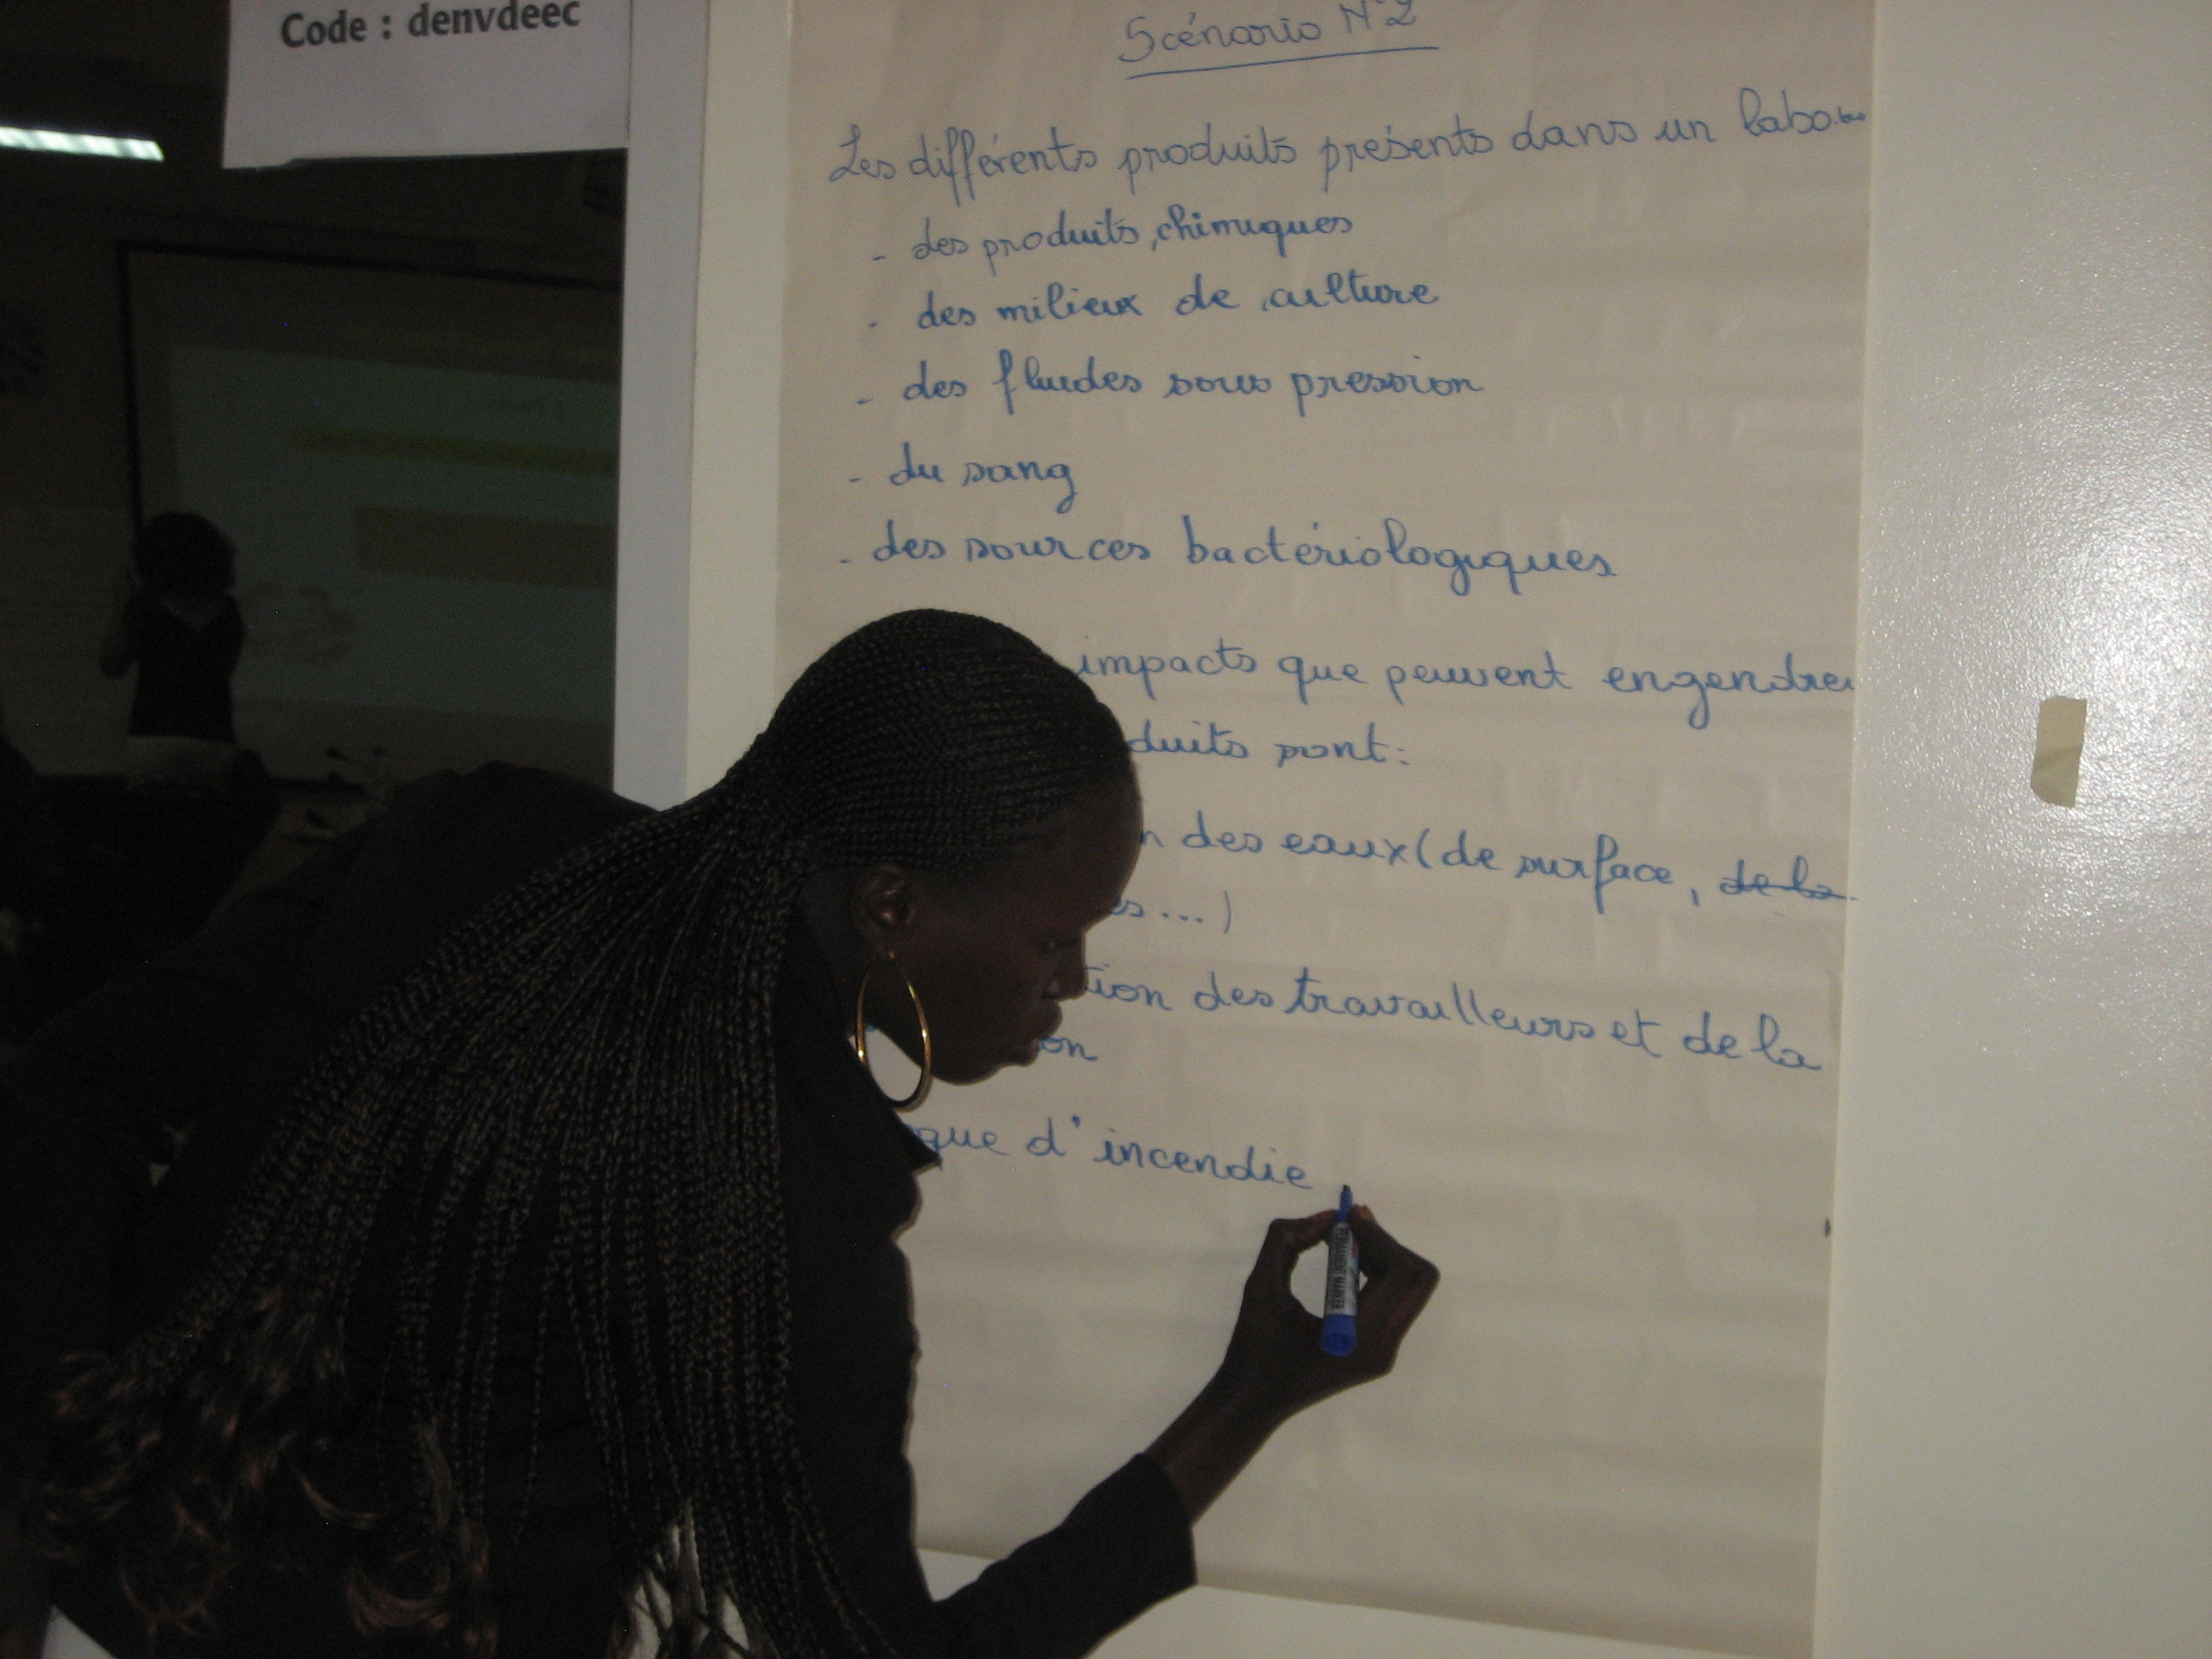 Code : denvdeec
Scénario N°2
Les différents produits présents dans un labo
- des produits chimiques
- des milieux de culture
- des fluides sous pression
- du sang
- des sources bactériologiques
impacts que peuvent engendrer
duits sont:
n des eaux (de surface, de la
es...)
tion des travailleurs et de la
on
que d'incendie
PERMANENT MARKER